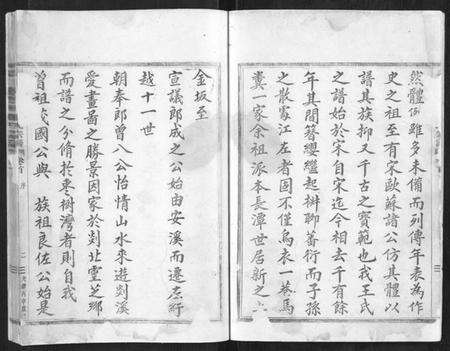 然體例雖多未備而列傳年表為作
史之祖至有宋歐蘇諸公仿其體以
譜其族抑又千古之寶範也我王氏
之譜始於宋自宋迄今相去千有餘
年其間纂纘繼起榊聊蕃衍而子孫
之散處江左者固不僅烏衣一巷馬
糞一家余祖派本長潭世居新之
金坂至
宣議郎成之公始由安溪而遷
越十一世
朝奉郎曾八公怡情山水來遊剡溪
愛畫圖之勝景因家於剡北靈芝鄉
而譜之分脩於棗樹灣者則自我
曾祖茂國公與 族祖良佐公始是